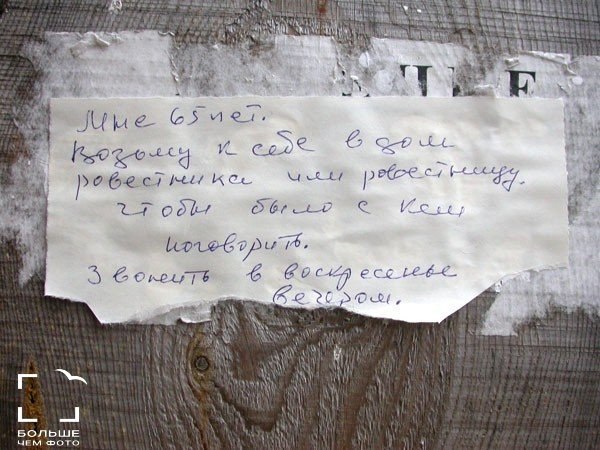 Ч Е
Мне 65 лет.
Возьму к себе в дом
ровестника или ровестницу.
Чтобы было с кем
поговорить.
Звонить в воскресенье
вечером.
БОЛЬШЕ
ЧЕМ ФОТО